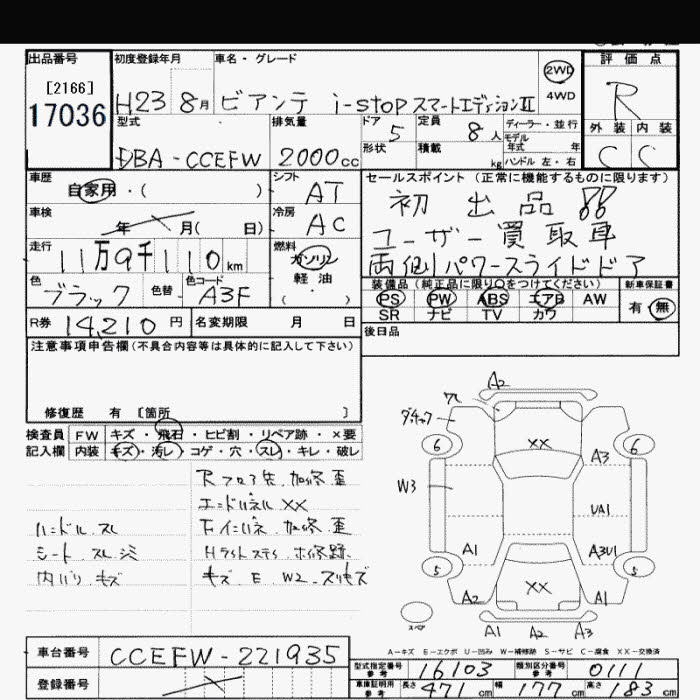 出品番号
[2166]
17036
初度登録年月
H23 8月
車名・グレード
ビアンテ i-stop スマートエディションII
2WD
4WD
評価点
R
外装 内装
C C
型式
DBA-CCEFW
排気量
2000cc
ドア 5
形状
定員 8人
積載 kg
ディーラー・並行
モデル
年式 年
ハンドル 左・右
車歴
自家用・( )
シフト
AT
車検
年 月( 日)
冷房
AC
走行
11万9千110km
燃料
ガソリン
軽油
( )
色
ブラック
色替
色コード
A3F
R券 14,210円
名変期限 月 日
セールスポイント(正常に機能するものに限ります)
初出品!!
ユーザー買取車
両側パワースライドドア
装備品(純正品に限り○をつけてください)
PS PW ABS エアB AW
SR ナビ TV カワ
新車保証書
有・無
後日品
注意事項申告欄(不具合内容等は具体的に記入して下さい)
修復歴 有 [箇所 ]
検査員 FW キズ・飛石・ヒビ割・リペア跡・×要
記入欄 内装 キズ・汚レ・コゲ・穴・スレ・キレ・破レ
Rフロア先 加修 歪
エンドパネル XX
下インパネ 加修 歪
ハンドル スレ
シート スレ シミ
内バリ キズ
キズ E W2
A2
6
6
XX
W3
A3
UA1
A1
A3U1
5
5
A2
XX
A1
スペア
A1 A2 A3
A-キズ E-エクボ U-凹み W-補修跡 S-サビ C-腐食 XX-交換済
車台番号 CCEFW-221935
登録番号
型式指定番号
参考
16103
類別区分番号
参考
0111
車庫証明用
参考
長さ 471cm 幅 177cm 高さ 183cm